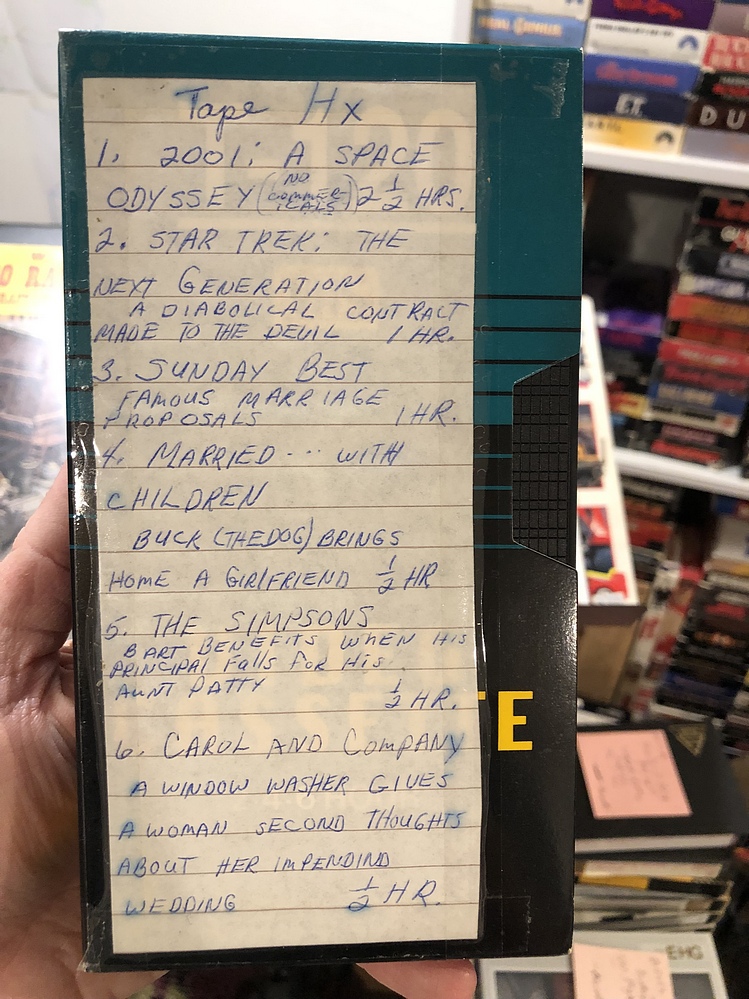 Tape Hx
1. 2001: A SPACE
ODYSSEY (NO COMMERCIALS) 2 1/2 HRS.
2. STAR TREK: THE
NEXT GENERATION
A DIABOLICAL CONTRACT
MADE TO THE DEVIL 1 HR.
3. SUNDAY BEST
FAMOUS MARRIAGE
PROPOSALS 1 HR.
4. MARRIED... WITH
CHILDREN
BUCK (THE DOG) BRINGS
HOME A GIRLFRIEND 1/2 HR
5. THE SIMPSONS
BART BENEFITS WHEN HIS
PRINCIPAL FALLS FOR HIS
AUNT PATTY 1/2 HR.
6. CAROL AND COMPANY
A WINDOW WASHER GIVES
A WOMAN SECOND THOUGHTS
ABOUT HER IMPENDIND
WEDDING 1/2 HR.
TE
E.T.
DU
EHG